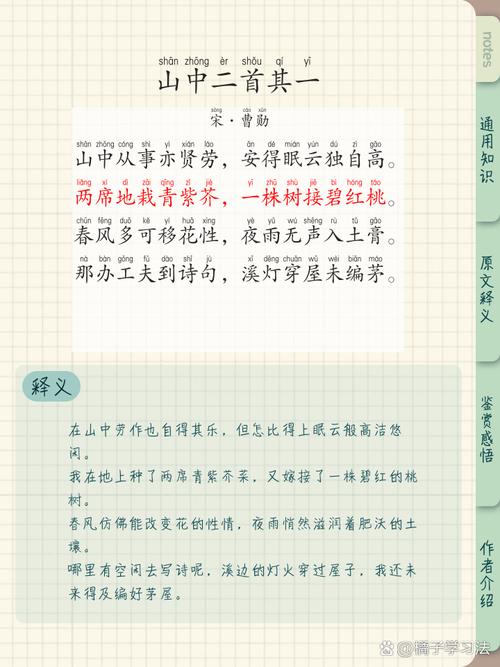 shān zhōng èr shǒu qí yī
山中二首其一
sòng cáo xūn
宋·曹勋
shān zhōng cóng shì yì xián láo ān dé mián yún dú zì gāo
山中从事亦贤劳，安得眠云独自高。
liǎng xí dì zāi qīng zǐ jiè yī zhū shù jiē bì hóng táo
两席地栽青紫芥，一株树接碧红桃。
chūn fēng duō kě yí huā xìng yè yǔ wú shēng rù tǔ gāo
春风多可移花性，夜雨无声入土膏。
nà bàn gōng fū dào shī jù xī dēng chuān wū wèi biān máo
那办工夫到诗句，溪灯穿屋未编茅。
释义
在山中劳作也自得其乐，但怎比得上眠云般高洁悠
闲。
我在地上种了两席青紫芥菜，又嫁接了一株碧红的桃
树。
春风仿佛能改变花的性情，夜雨悄然滋润着肥沃的土
壤。
哪里有空闲去写诗呢，溪边的灯火穿过屋子，我还未
来得及编好茅屋。
notes
通用知识
原文释义
鉴赏感悟
作者介绍
@橘子学习法